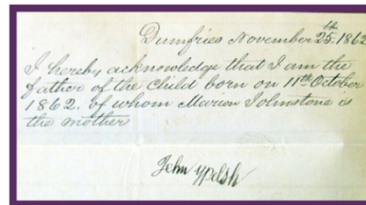 Dumfries November 25th. 1862
I hereby acknowledge that I am the
father of the Child born on 11th October
1862, of whom Marion Johnstone is
the mother
John Welsh